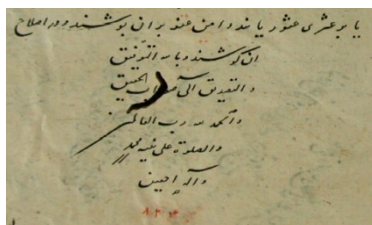 یا بر عثری عثور یابند دامن عفو بران بپوشند و در اصلاح
ان کوشند و بالله التوفیق
و التحقیق
والحمد لله رب العالمین
والصلوة علی نبیه محمد
وآله اجمعین